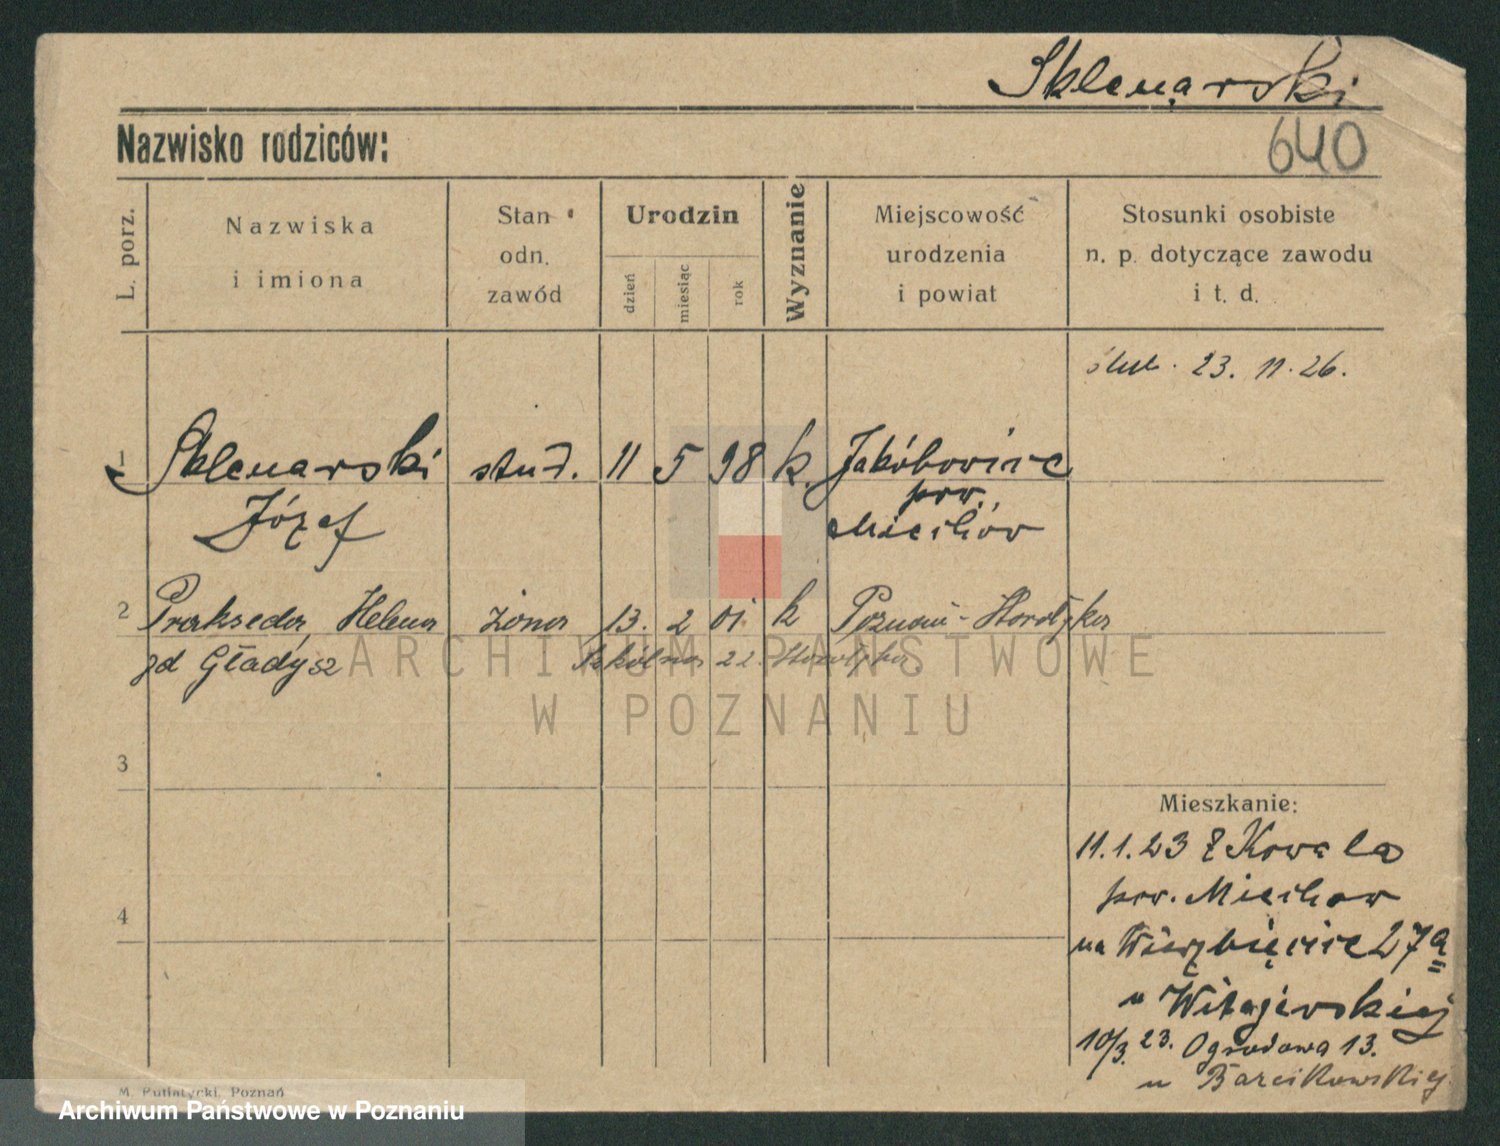 Sklenarski
640
Nazwisko rodziców:
L. porz.
Nazwiska
i imiona
Stan
odn.
zawód
Urodzin
dzień
miesiąc
rok
Wyznanie
Miejscowość
urodzenia
i powiat
Stosunki osobiste
n. p. dotyczące zawodu
i t. d.
ślub. 23. 11. 26.
1 Sklenarski stud. 11 5 98 k. Jakóbowice
Józef pow. Miechów
2 Prakseda Helena żona 13. 2 01 k Poznań-Starołęka
zd Gładysz Szkolna 22 Starołęka
3
4
Mieszkanie:
11.1.23 z Kowala
pow. Miechow
na Wierzbięcice 27a
u
10/3. 23. Ogrodowa 13.
u Barcikowskiej
M. Putiatycki, Poznań
ARCHIWUM PAŃSTWOWE
W POZNANIU
Archiwum Państwowe w Poznaniu